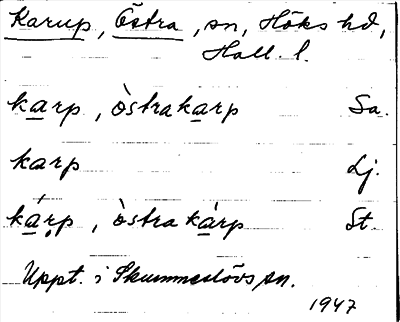 Karup, Östra, sn, Höks hd,
Hall. l.
karp, òstrakarp Sa.
karp Lj.
kárp, òstrakàrp St.
Uppt. i Skummeslövs sn.
1947